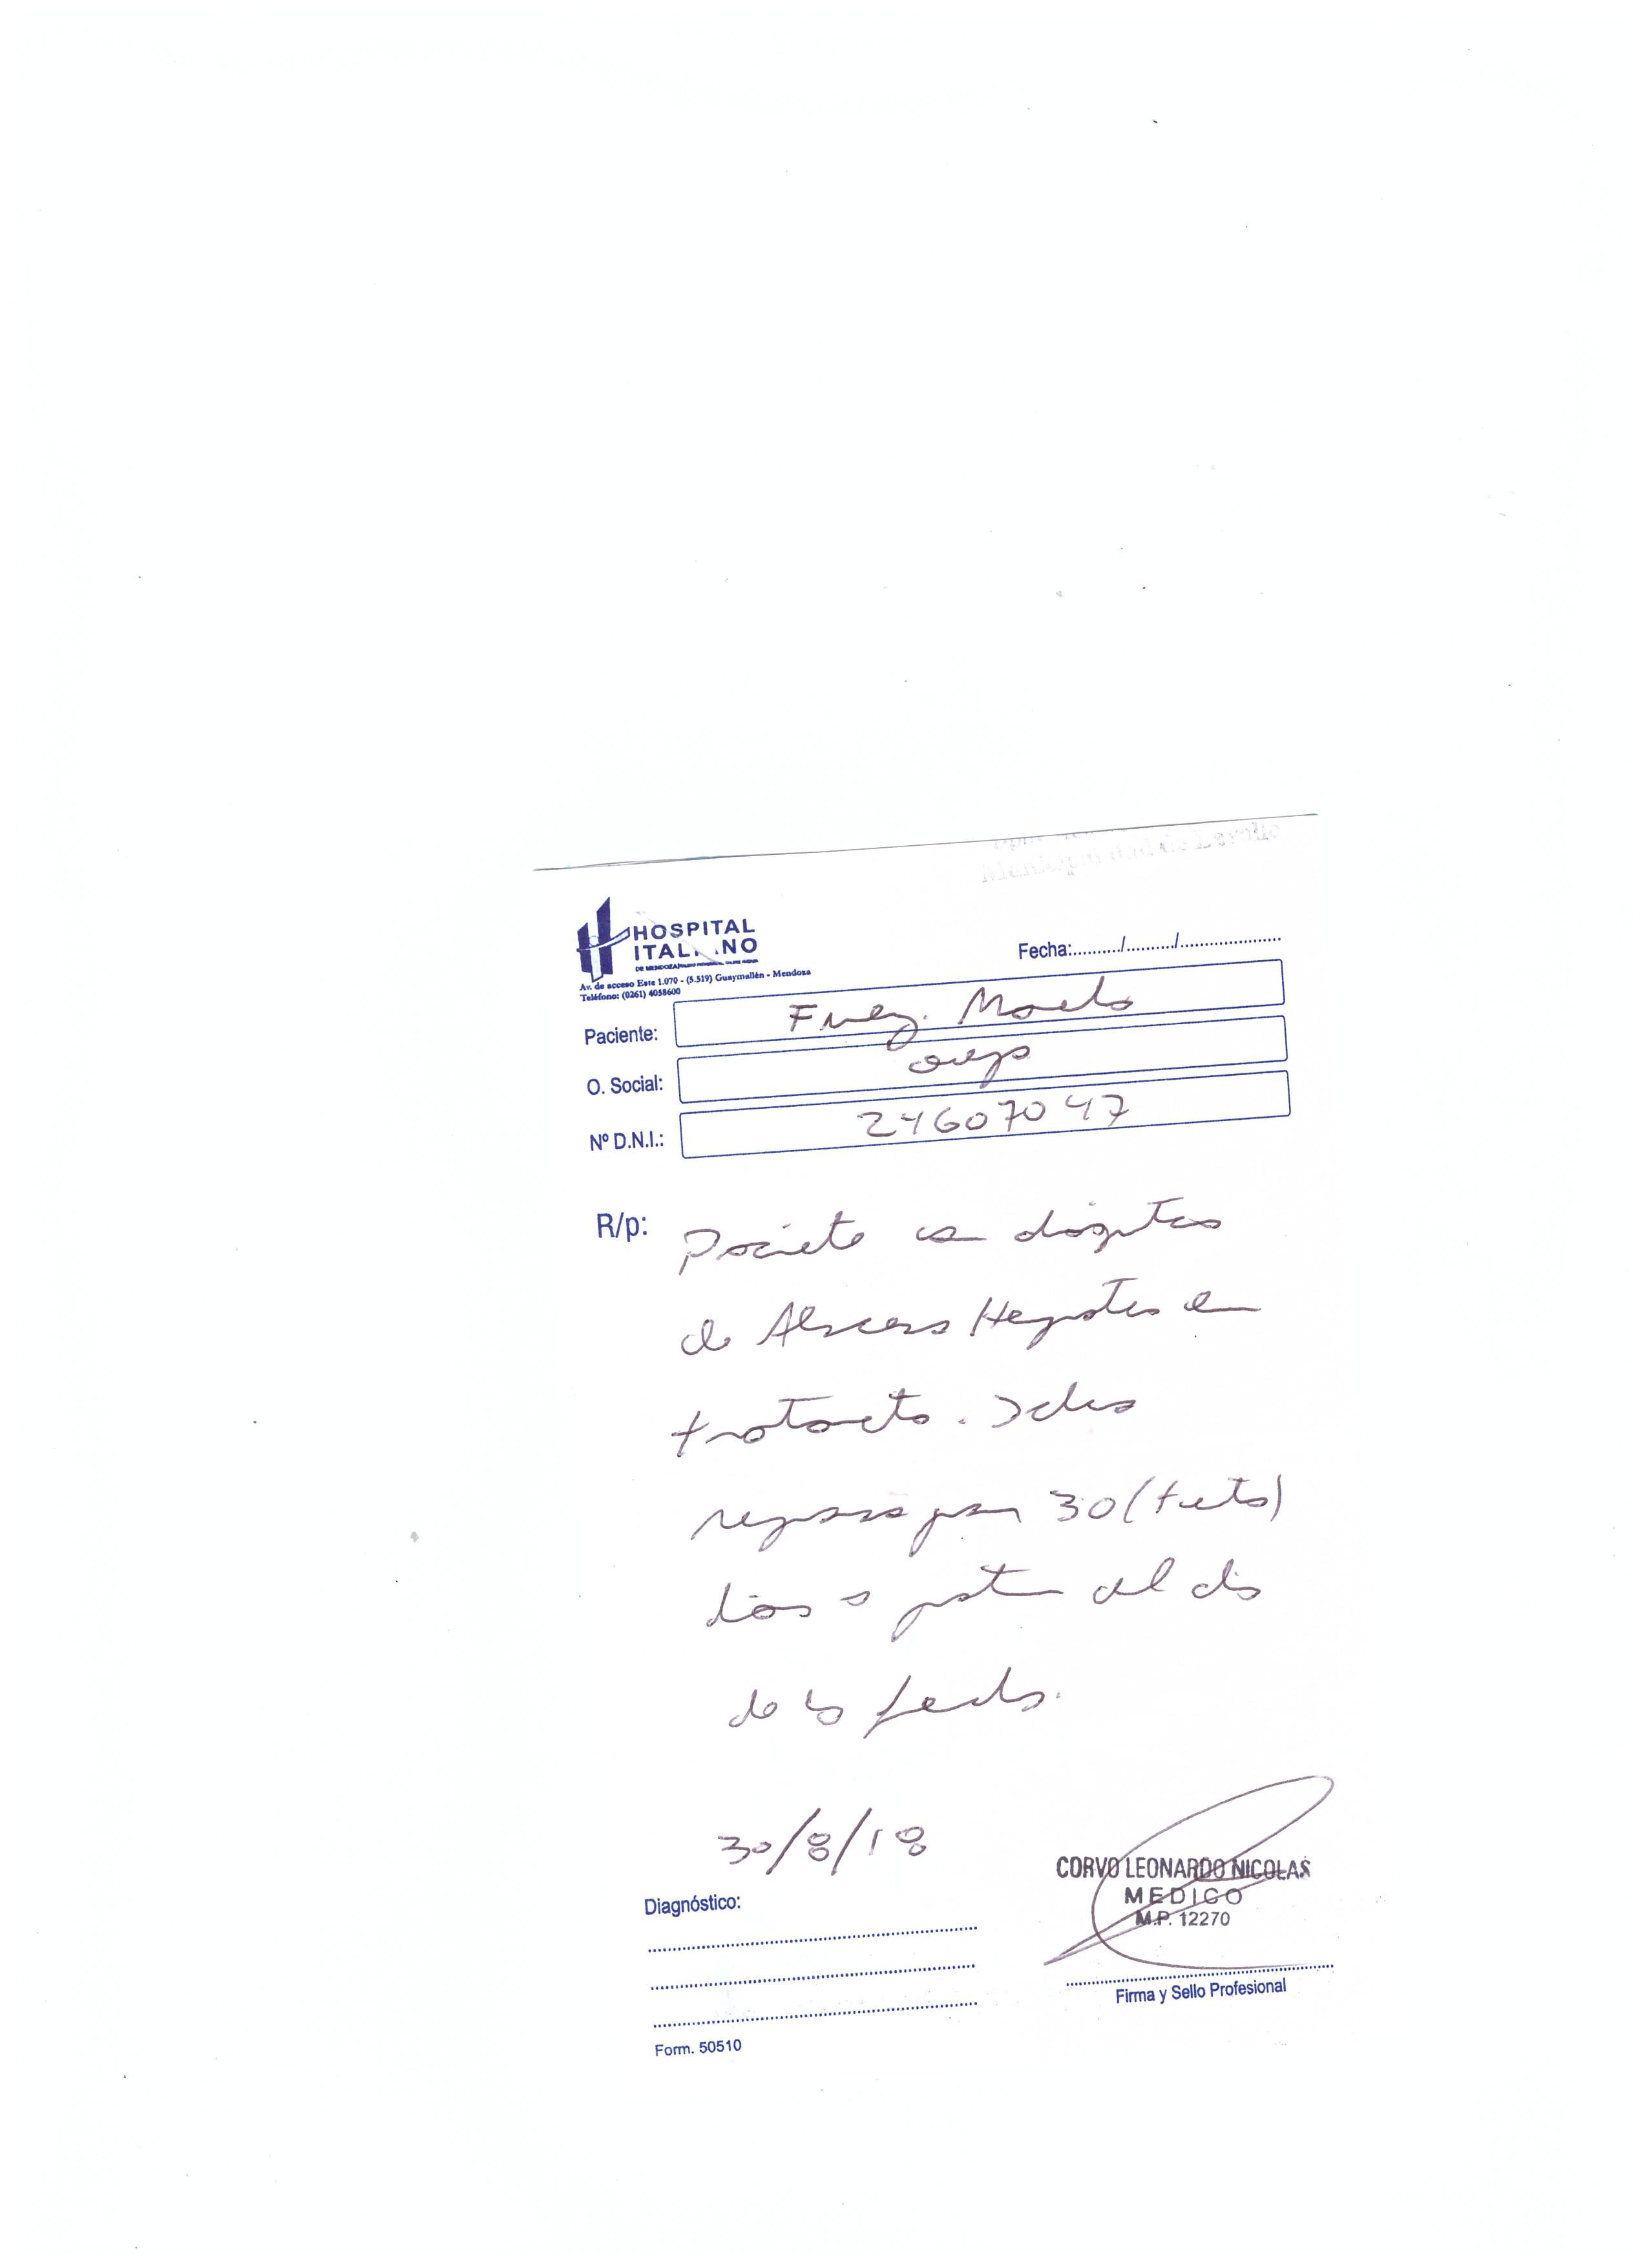 Municipalidad de Lavalle
HOSPITAL
ITALIANO
DE MENDOZA
Av. de acceso Este 1.070 - (5.519) Guaymallén - Mendoza
Teléfono: (0261) 4058600
Fecha:........./........./....................
Paciente:
O. Social:
Nº D.N.I.: 24607047
R/p: Paciente con diagnostico
de Absceso Hepatico en
tratamiento. Debe
reposo por 30 (treinta)
dias a partir del dia
de la fecha.
30/8/18
CORVO LEONARDO NICOLAS
MEDICO
M.P. 12270
Diagnóstico:
Firma y Sello Profesional
Form. 50510